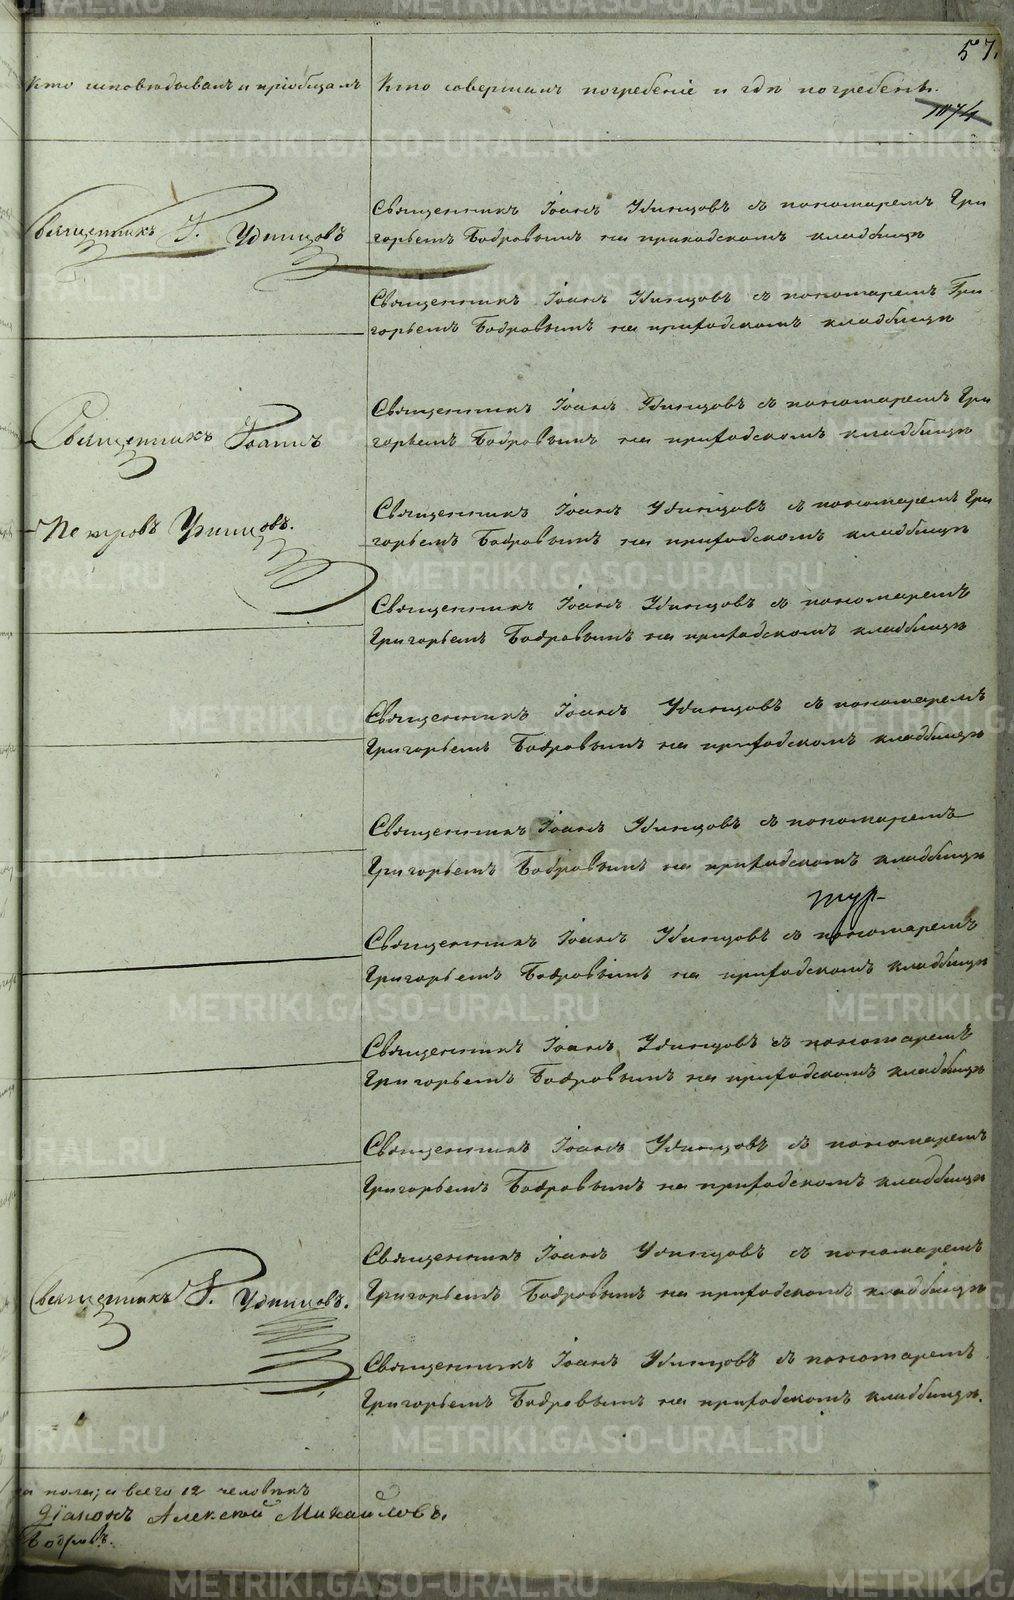 57.
Кто исповѣдывалъ и пріобщалъ
Кто совершалъ погребеніе и гдѣ погребены.
174
Священникъ І. Удинцовъ
Священникъ Іоаннъ
Петровъ Удинцовъ.
Священникъ І. Удинцовъ.
Священникъ Іоаннъ Удинцовъ съ пономаремъ Гри
горьемъ Бобровымъ на приходскомъ кладбищѣ
Священникъ Іоаннъ Удинцовъ съ пономаремъ Гри
горьемъ Бобровымъ на приходскомъ кладбищѣ
Священникъ Іоаннъ Удинцовъ съ пономаремъ Гри
горьемъ Бобровымъ на приходскомъ кладбищѣ
Священникъ Іоаннъ Удинцовъ съ пономаремъ Гри
горьемъ Бобровымъ на приходскомъ кладбищѣ
Священникъ Іоаннъ Удинцовъ съ пономаремъ
Григорьемъ Бобровымъ на приходскомъ кладбищѣ
Священникъ Іоаннъ Удинцовъ съ пономаремъ
Григорьемъ Бобровымъ на приходскомъ кладбищѣ
Священникъ Іоаннъ Удинцовъ съ пономаремъ
Григорьемъ Бобровымъ на приходскомъ кладбищѣ
Священникъ Іоаннъ Удинцовъ съ пономаремъ
Григорьемъ Бобровымъ на приходскомъ кладбищѣ
Священникъ Іоаннъ Удинцовъ съ пономаремъ
Григорьемъ Бобровымъ на приходскомъ кладбищѣ
Священникъ Іоаннъ Удинцовъ съ пономаремъ
Григорьемъ Бобровымъ на приходскомъ кладбищѣ
Священникъ Іоаннъ Удинцовъ съ пономаремъ
Григорьемъ Бобровымъ на приходскомъ кладбищѣ
Священникъ Іоаннъ Удинцовъ съ пономаремъ
Григорьемъ Бобровымъ на приходскомъ кладбищѣ.
пола; а всего 12 человѣкъ
Діаконъ Алексѣй Михайловъ.
Бобровъ.
METRIKI.GASO-URAL.RU